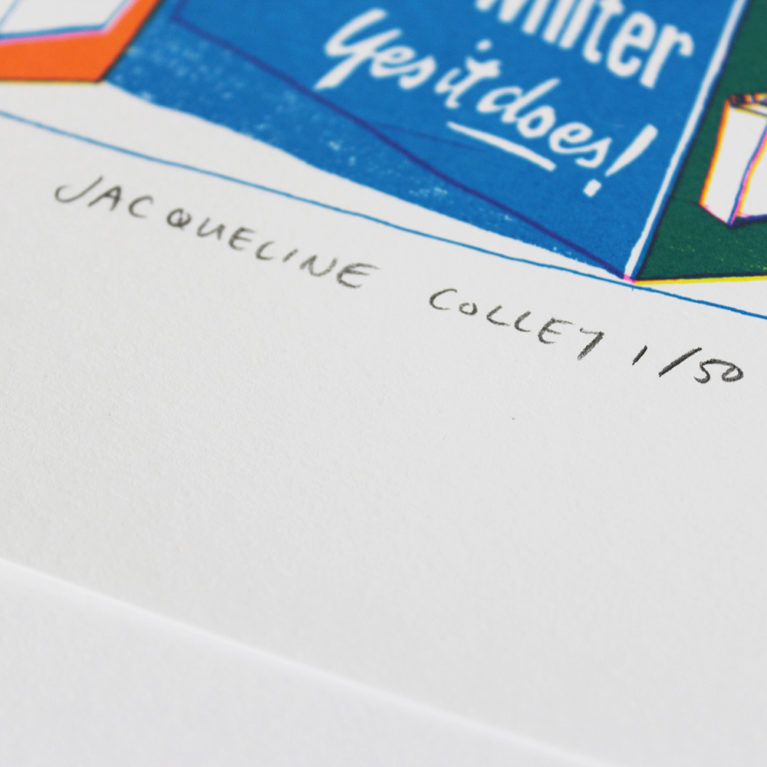 whiter
Yes it does!
JACQUELINE COLLEY 1/50